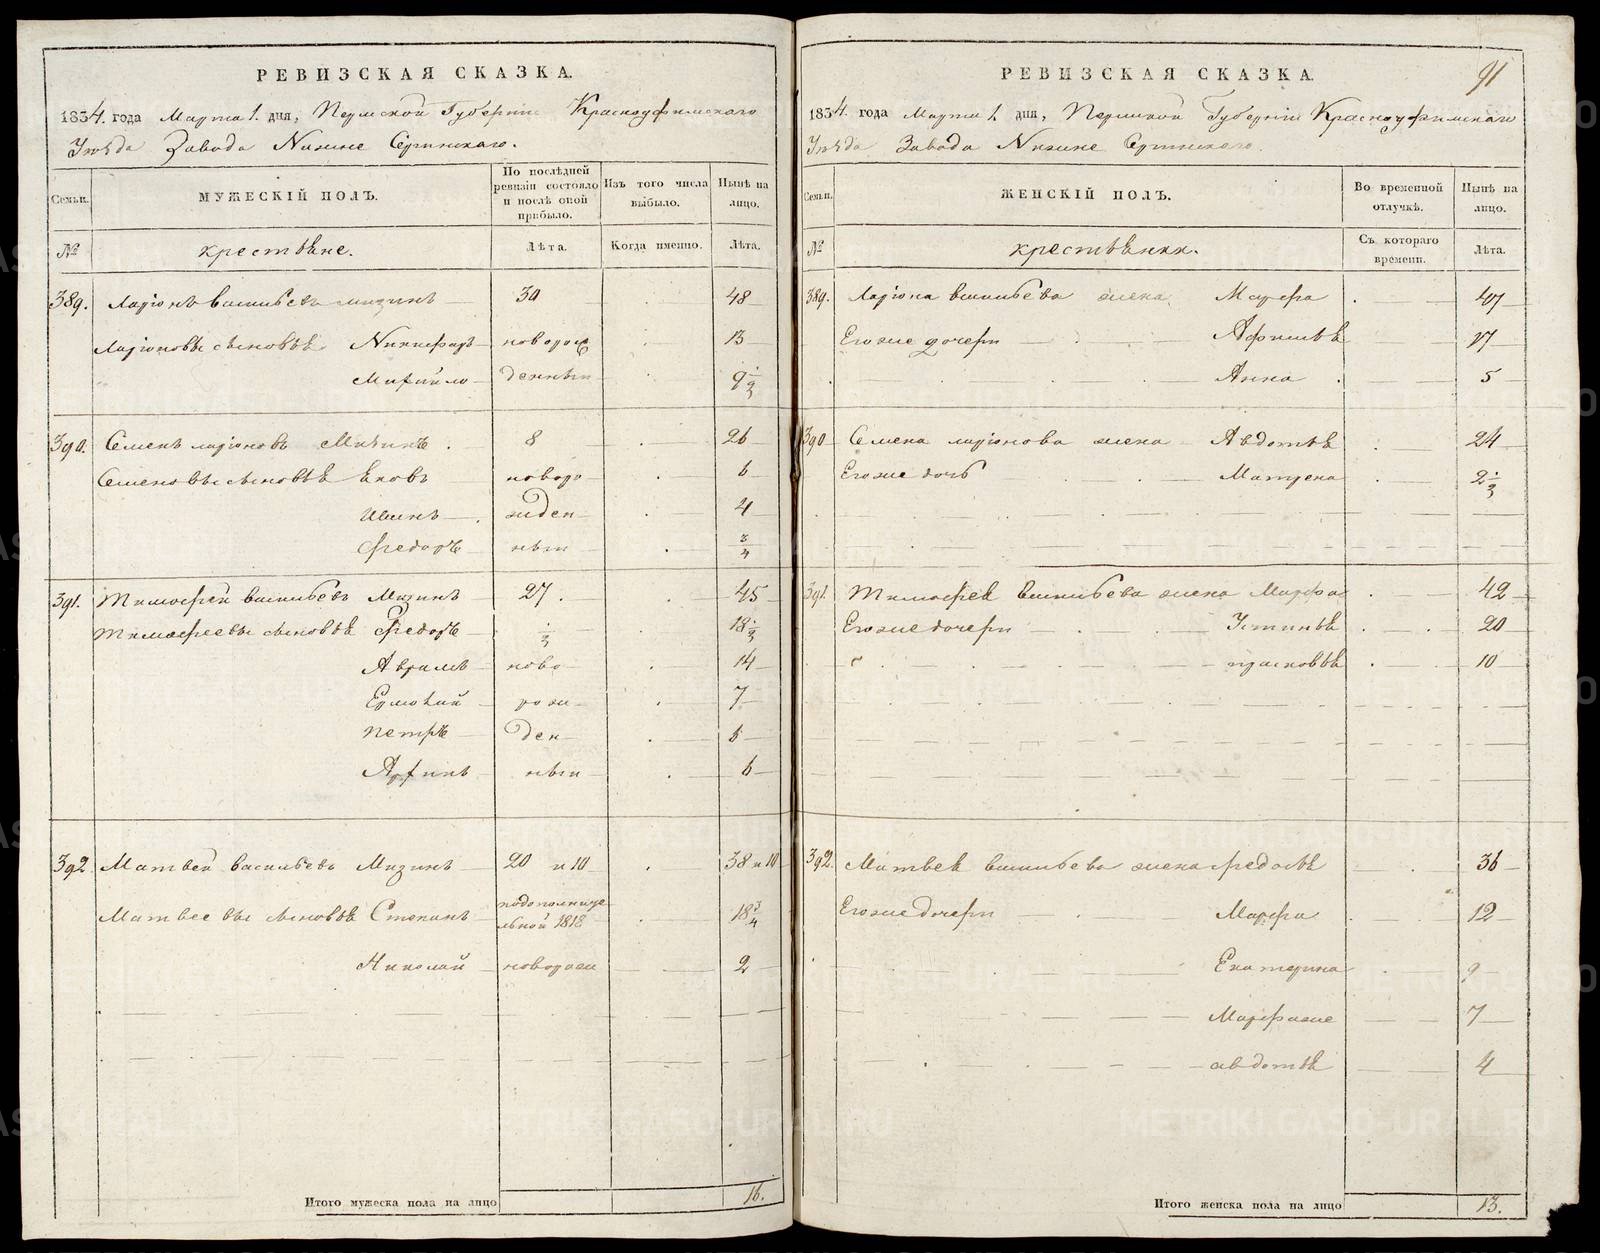 РЕВИЗСКАЯ СКАЗКА.
1834. года Марта 1. дня, Пермской Губернии Красноуфимскаго
Уѣзда Завода Нижне Сергинскаго.
Семьи. МУЖЕСКІЙ ПОЛЪ. По послѣдней ревизіи состояло и послѣ оной прибыло. Изъ того числа выбыло. Нынѣ на лицо.
№ крестьяне. Лѣта. Когда именно. Лѣта.
389. Ларіонъ Васильевъ Мизинъ 30 48
Ларіоновы сыновья Никифоръ новорож 13
Михайло денныи 9 1/2
390. Семенъ Ларіоновъ Мизинъ. 8 26
Семеновы сыновья Яковъ новоро 6
Иванъ жден 4
Федоръ ныи 3/4
391. Тимофей Васильевъ Мизинъ 27. 45
Тимофеевы сыновья Федоръ 1/2 18 1/2
Аврамъ ново 14
Ермолай рож 7
Петръ ден
ныи 6
392 Матвей Васильевъ Мизинъ 20 и 10 38 и 10
Матвеевы сыновья Степанъ подополните
льной 1818 18 3/4
Николай новорож 2
Итого мужеска пола на лицо 16.
91
РЕВИЗСКАЯ СКАЗКА.
1834 года Марта 1. дня, Пермской Губерніи Красноуфимскаго
Уѣзда Завода Нижне Сергинскаго.
Семьи. ЖЕНСКІЙ ПОЛЪ. Во временной отлучкѣ. Нынѣ на лицо.
№ крестьянки. Съ котораго времени. Лѣта.
389. Ларіона Васильева жена Марфа 47
Егоже дочери Афимья 17
Анна 5
390 Семена Ларіонова жена Авдотья 24
Егоже дочь Матрена 2 1/2
391 Тимофея Васильева жена Марфа 42
Егоже дочери Устинья 20
Прасковья 10
392. Матвея Васильева жена Федосья 36
Егоже дочери Марфа 12
Екатерина 9
Марфаже 7
Авдотья 4
Итого женска пола на лицо 13.
METRIKI.GASO-URAL.RU